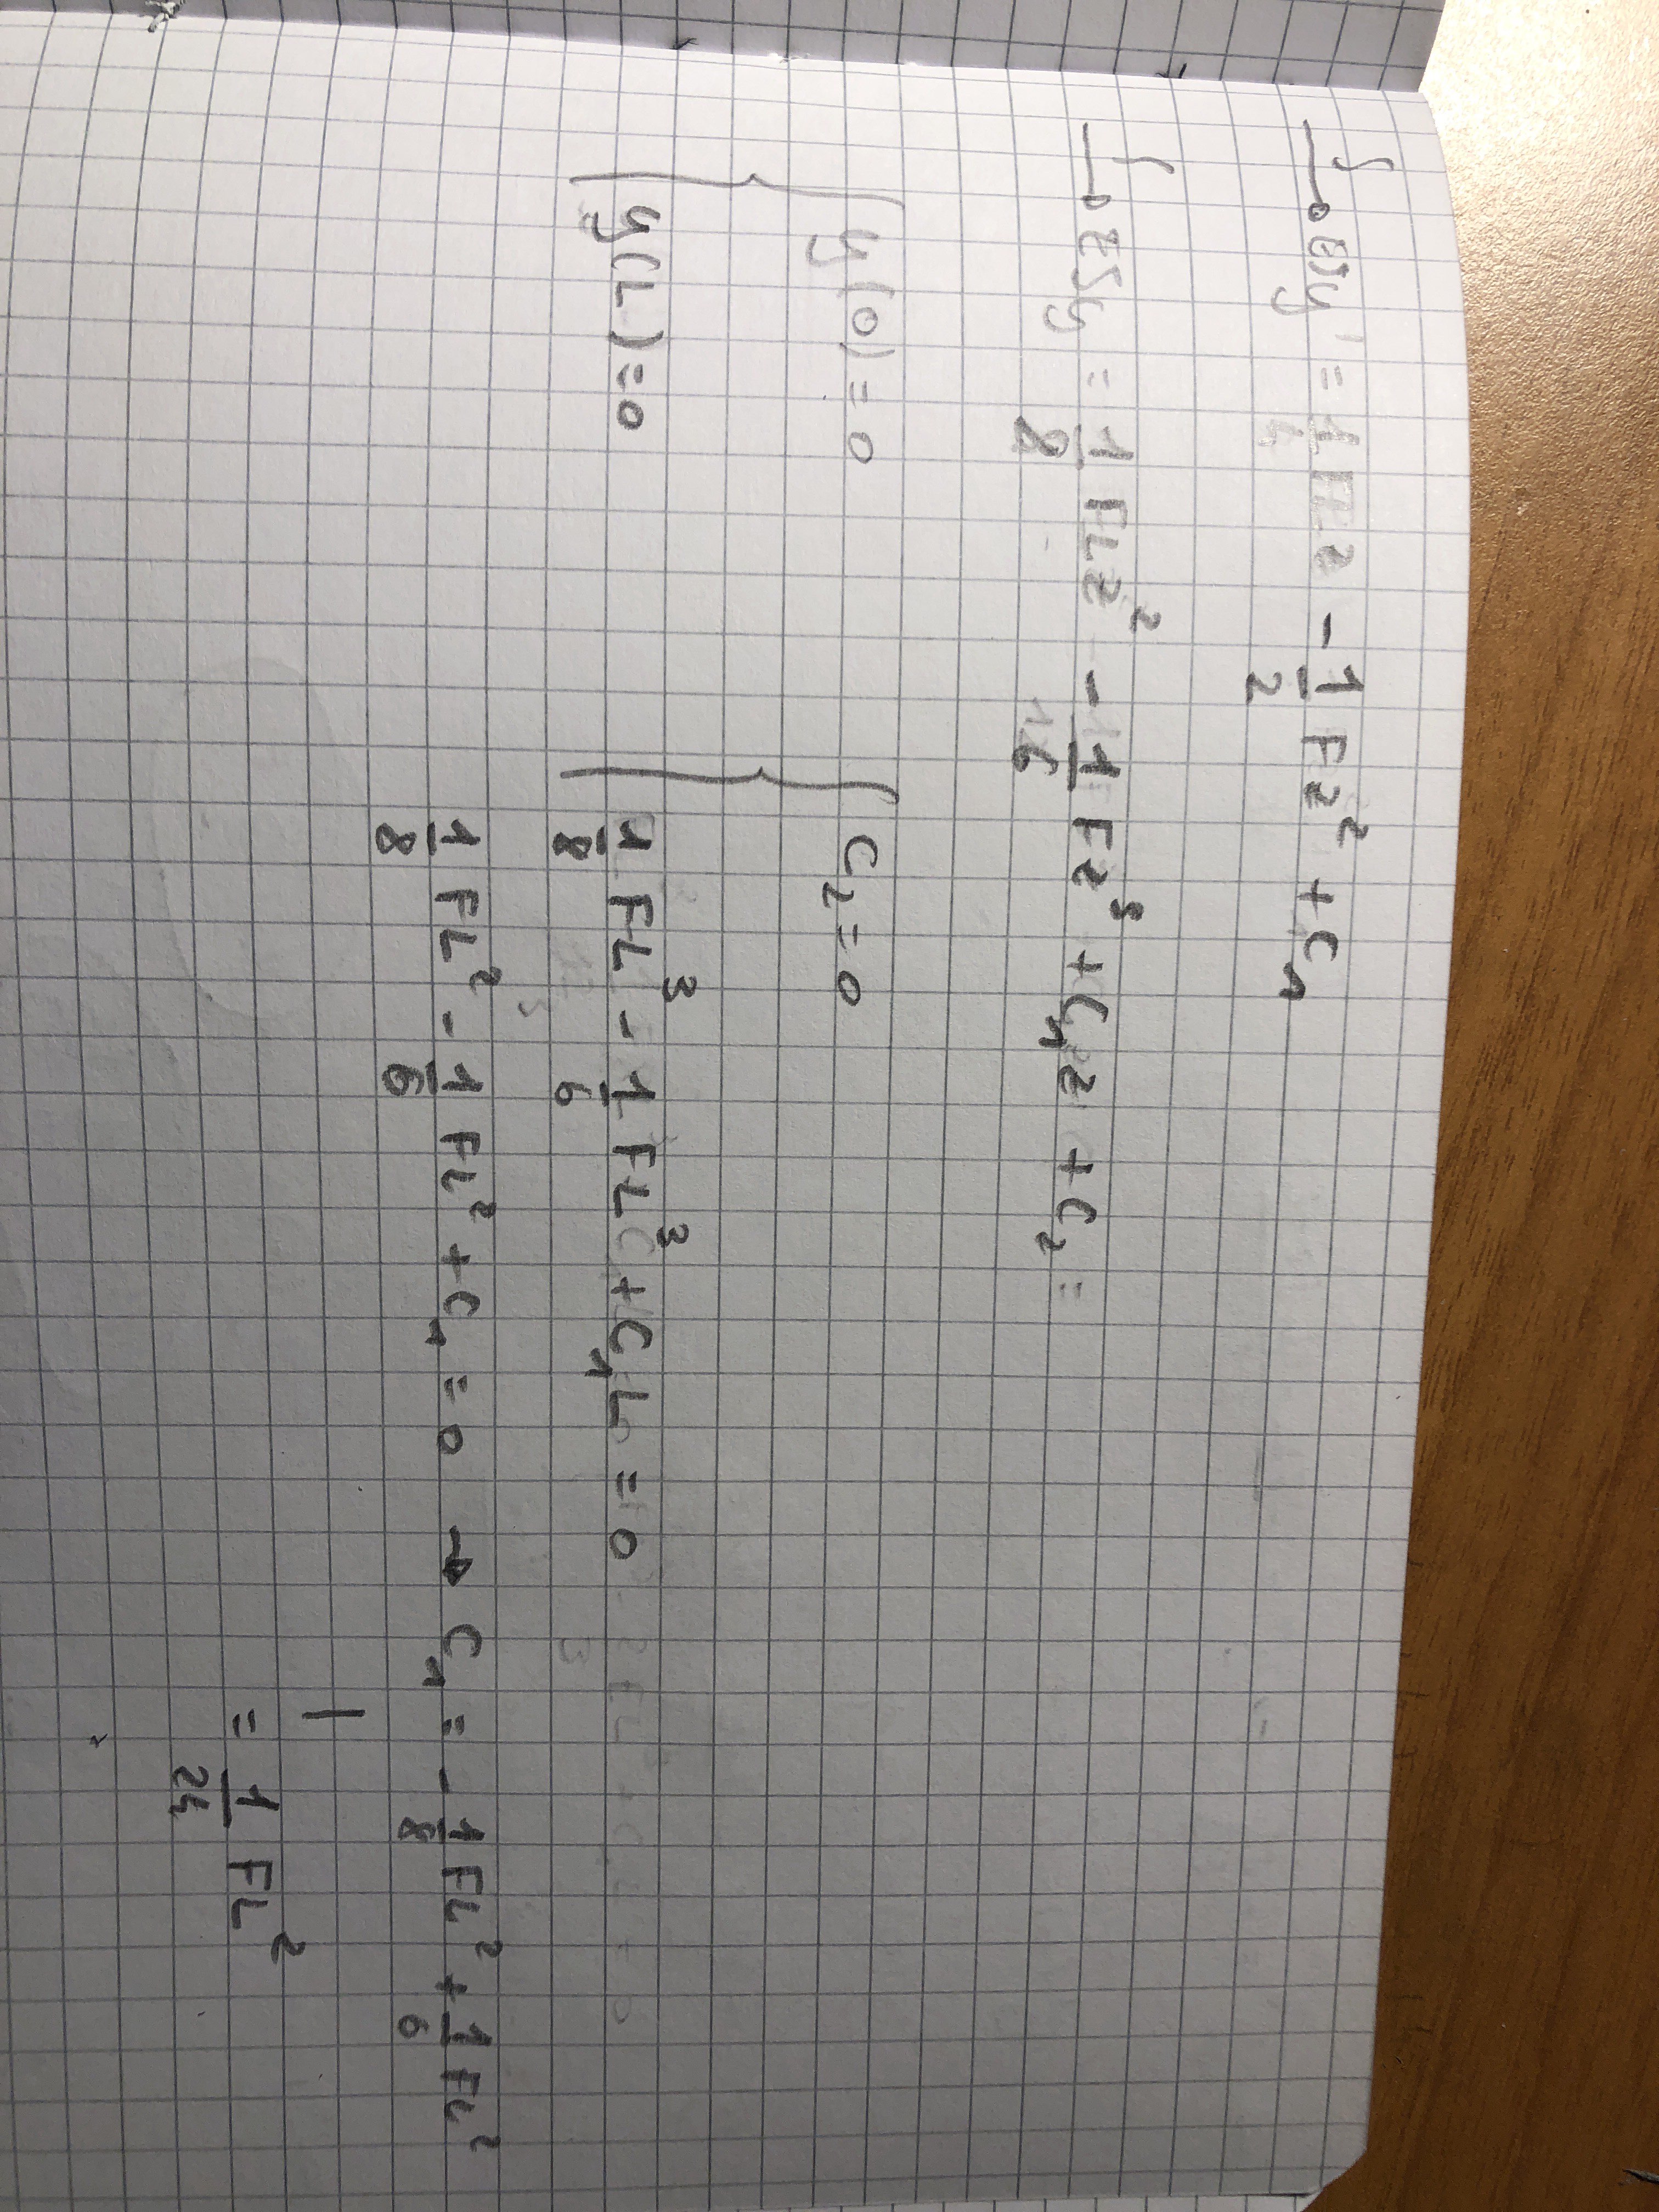 ∫→ EJy' = 1/4 FLz - 1/2 Fz² + C₁
∫→ EJy = 1/8 FLz² - 1/6 Fz³ + C₁z + C₂ =
{ y(0) = 0 { C₂ = 0
y(L) = 0 1/8 FL³ - 1/6 FL³ + C₁L = 0
1/8 FL² - 1/6 FL² + C₁ = 0 → C₁ = - 1/8 FL² + 1/6 FL²
= 1/24 FL²